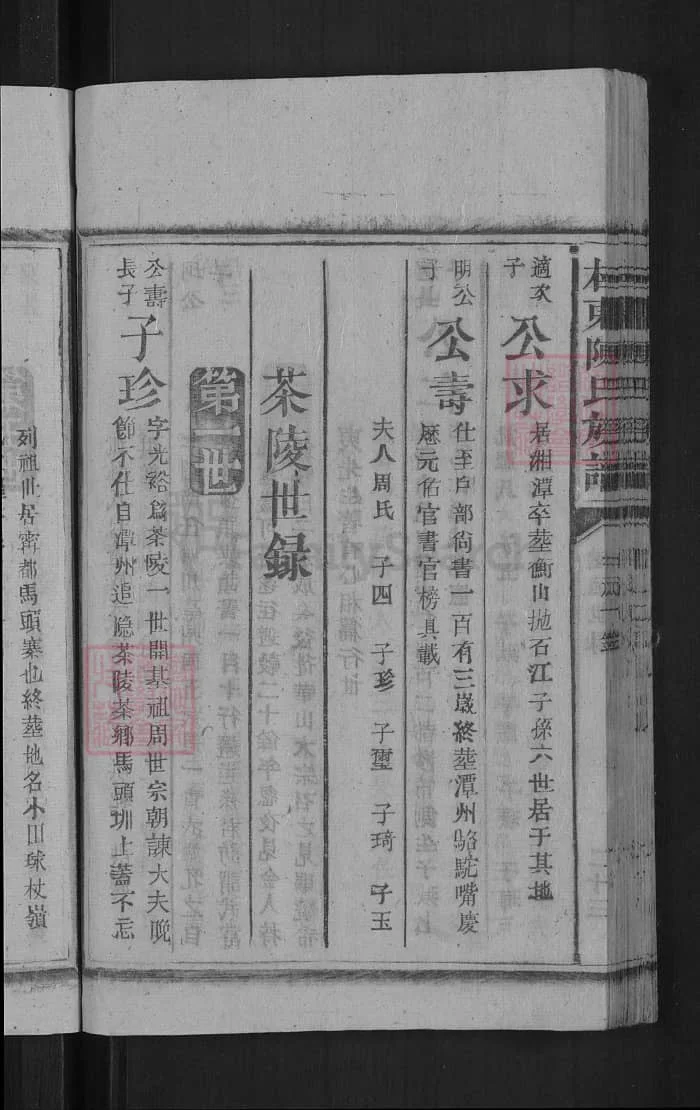 東陳氏族譜
適次子
公求
居湘潭卒塟衡山拋石江子孫六世居于其地
明公子
公壽
仕至戶部尚書一百有三歲終塟潭州駱駝嘴慶
歷元佑官書官榜具載
夫人周氏 子四 子珍 子璽 子琦 子玉
茶陵世録
第一世
公壽長子
子珍
字光裕爲茶陵一世開基祖周世宗朝諫大夫晚
節不仕自潭州追隐茶陵茶鄉馬頭圳上蓋不忘
列祖世居寗都馬頭寨也終塟地名木田球杖嶺